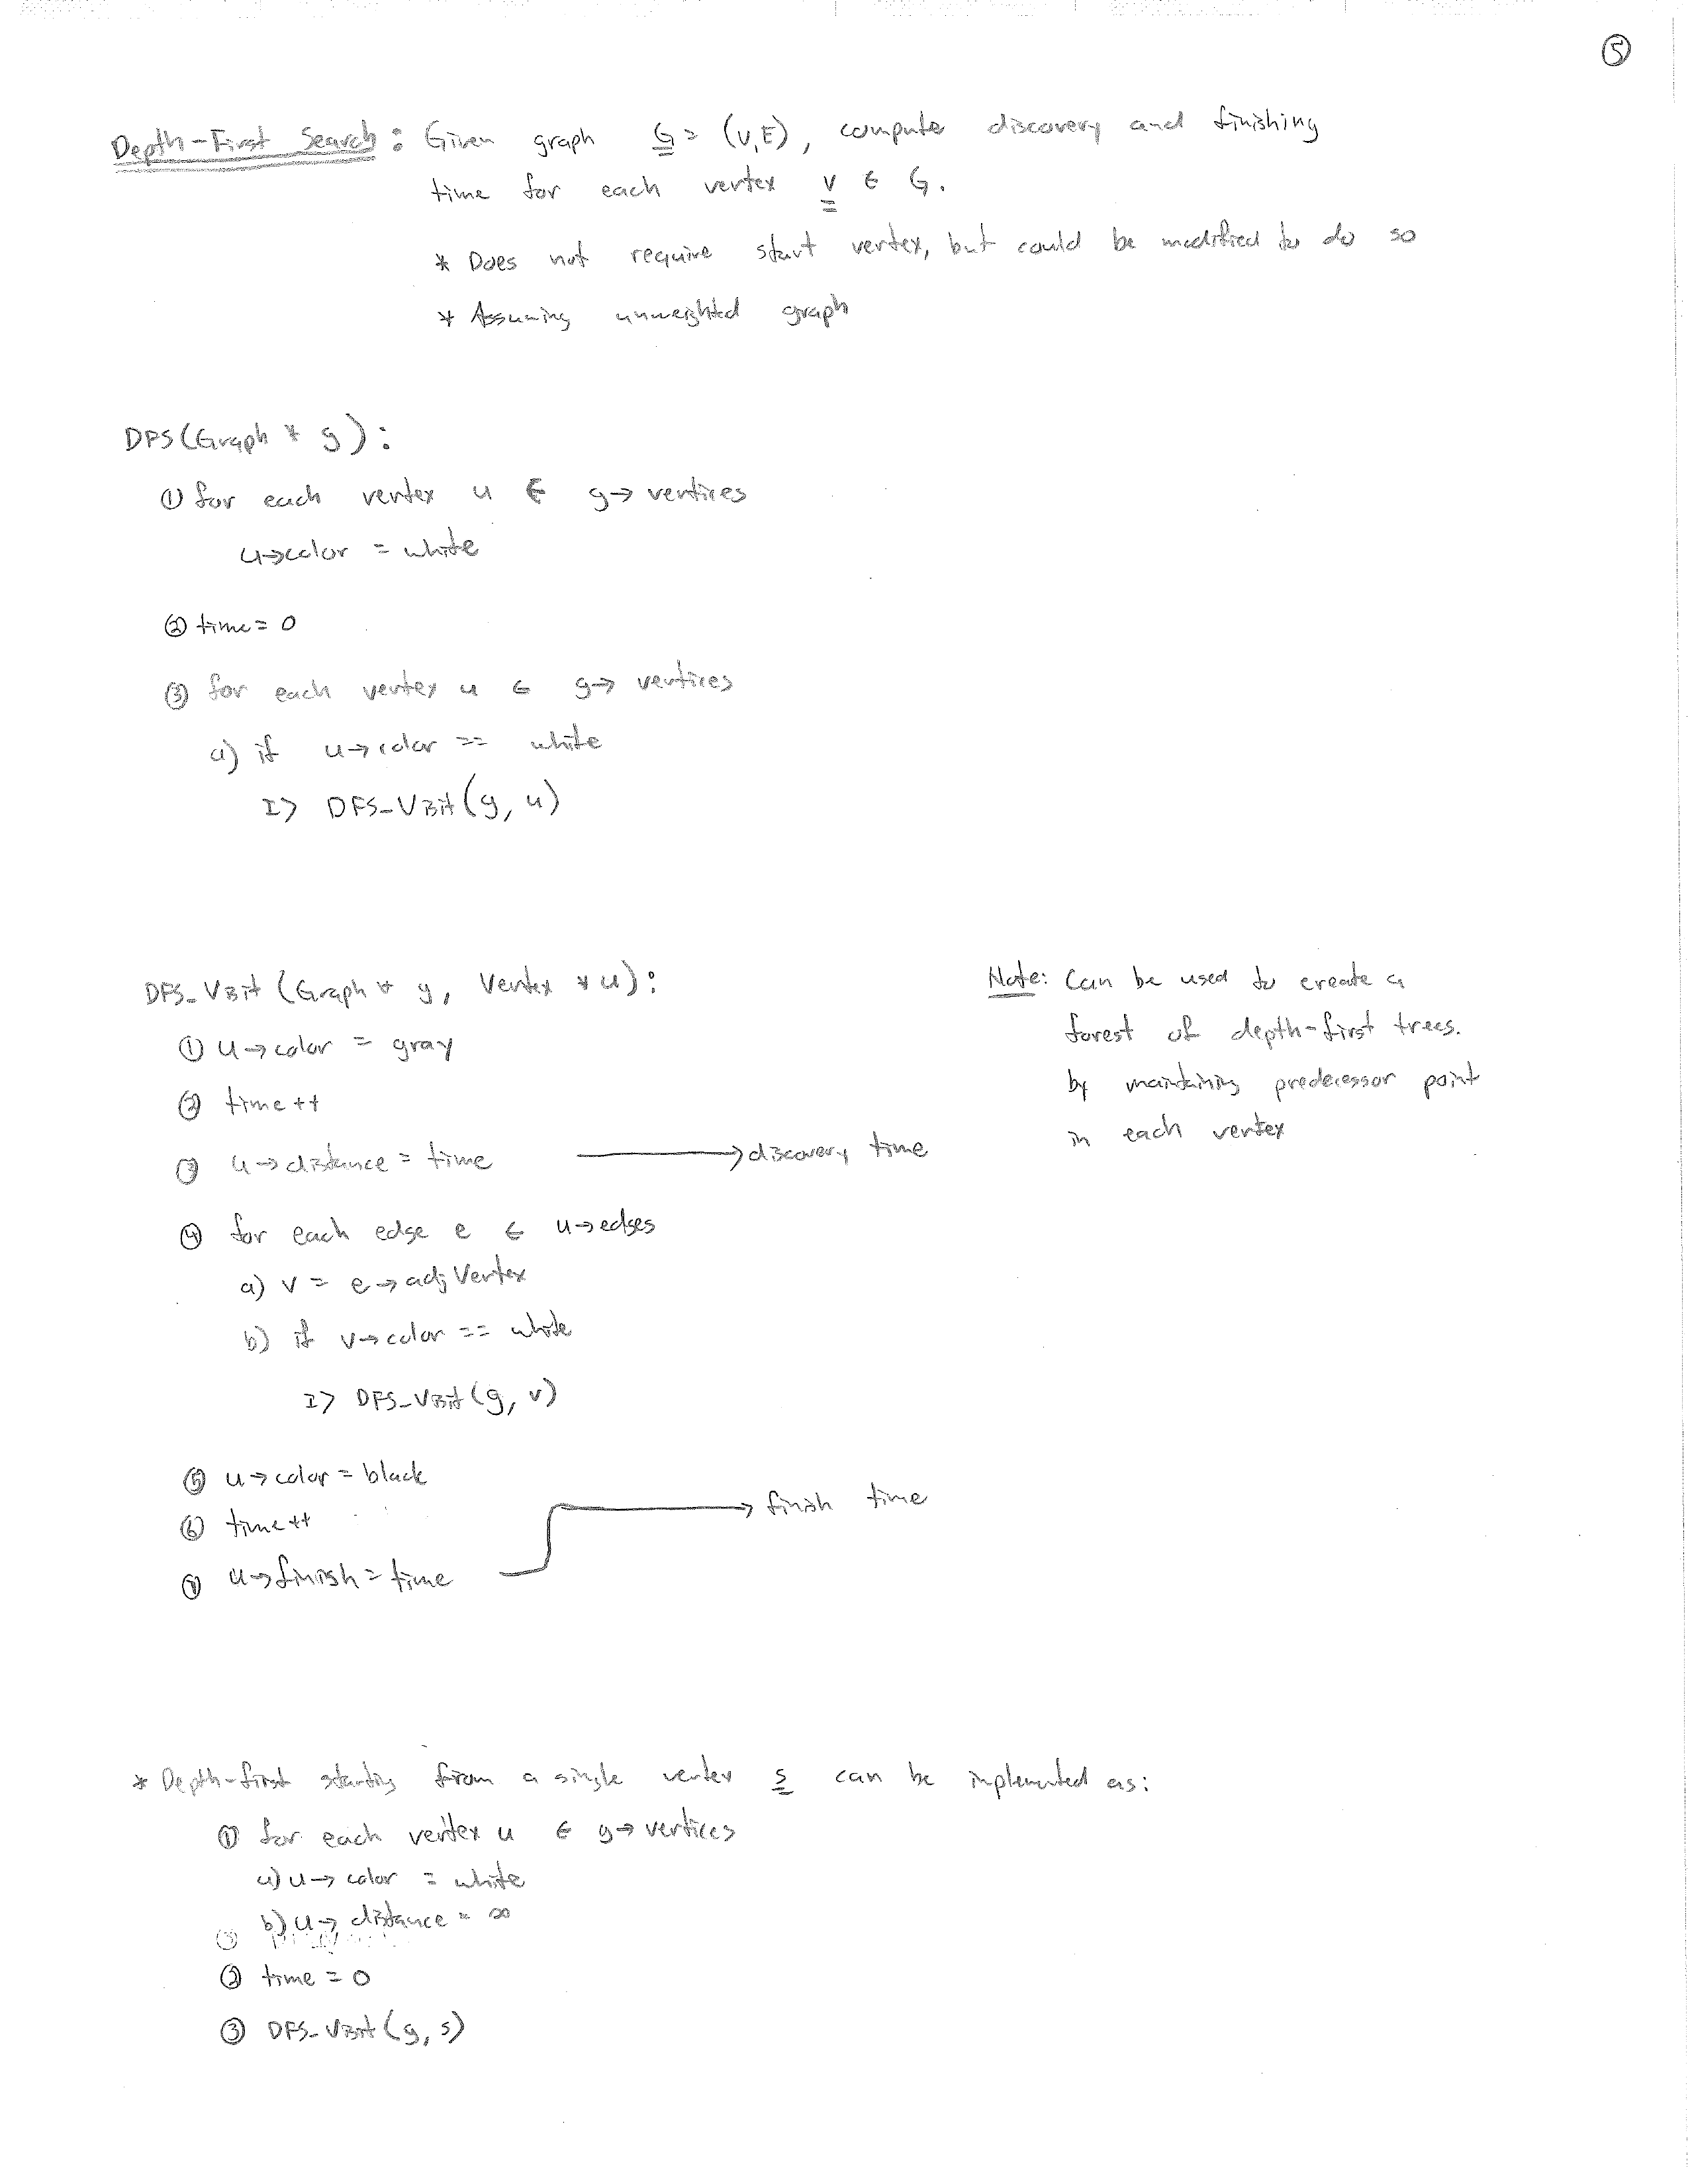 ⑤
Depth-First Search: Given graph G = (V,E), compute discovery and finishing
time for each vertex v ∈ G.
* Does not require start vertex, but could be modified to do so
* Assuming unweighted graph
DFS(Graph * g):
① for each vertex u ∈ g→vertices
u→color = white
② time = 0
③ for each vertex u ∈ g→vertices
a) if u→color == white
I> DFS_Visit(g, u)
DFS_Visit (Graph * g, Vertex * u):
① u→color = gray
② time++
③ u→distance = time → discovery time
④ for each edge e ∈ u→edges
a) v = e→adjVertex
b) if v→color == white
I> DFS_Visit(g, v)
⑤ u→color = black
⑥ time++
u→finish = time → finish time
Note: Can be used to create a
forest of depth-first trees.
by maintaining predecessor point
in each vertex
* Depth-first starting from a single vertex s can be implemented as:
① for each vertex u ∈ g→vertices
a) u→color = white
b) u→distance = ∞
② time = 0
③ DFS_Visit(g, s)